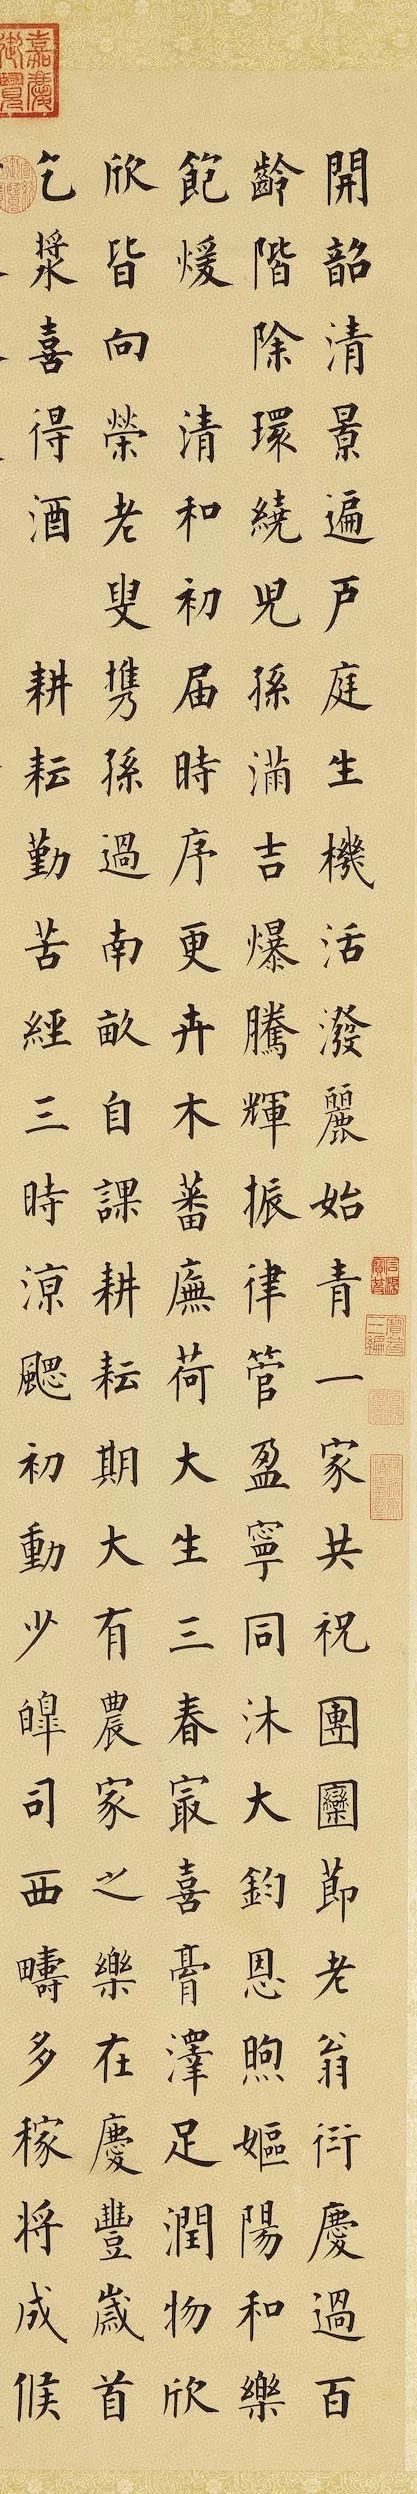 開韶清景遍戶庭生機活潑麗始青一家共祝團圞節老翁衍慶過百
齡階除環繞兒孫滿吉爆騰輝振律管盈寧同沐大鈞恩煦嫗陽和樂
飽煖 清和初届時序更卉木蕃廡荷大生三春㝡喜膏澤足潤物欣
欣皆向榮老叟携孫過南畝自課耕耘期大有農家之樂在慶豐歲首
乞漿喜得酒 耕耘勤苦經三時涼颸初動少皞司西疇多稼将成候
嘉慶御覽